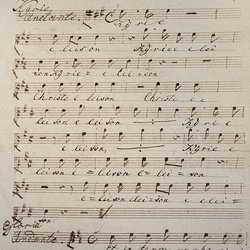 Kyrie
Andante. Kyrie
eleison Kyrie elei
son Kyrie = e lei = son
Christe eleison Christe e =
leison eleison, Kyrie
eleison, Kyrie
leison e = leison elei = son
e = leison eleison = elei =
Gloria son
Andante Et in terra